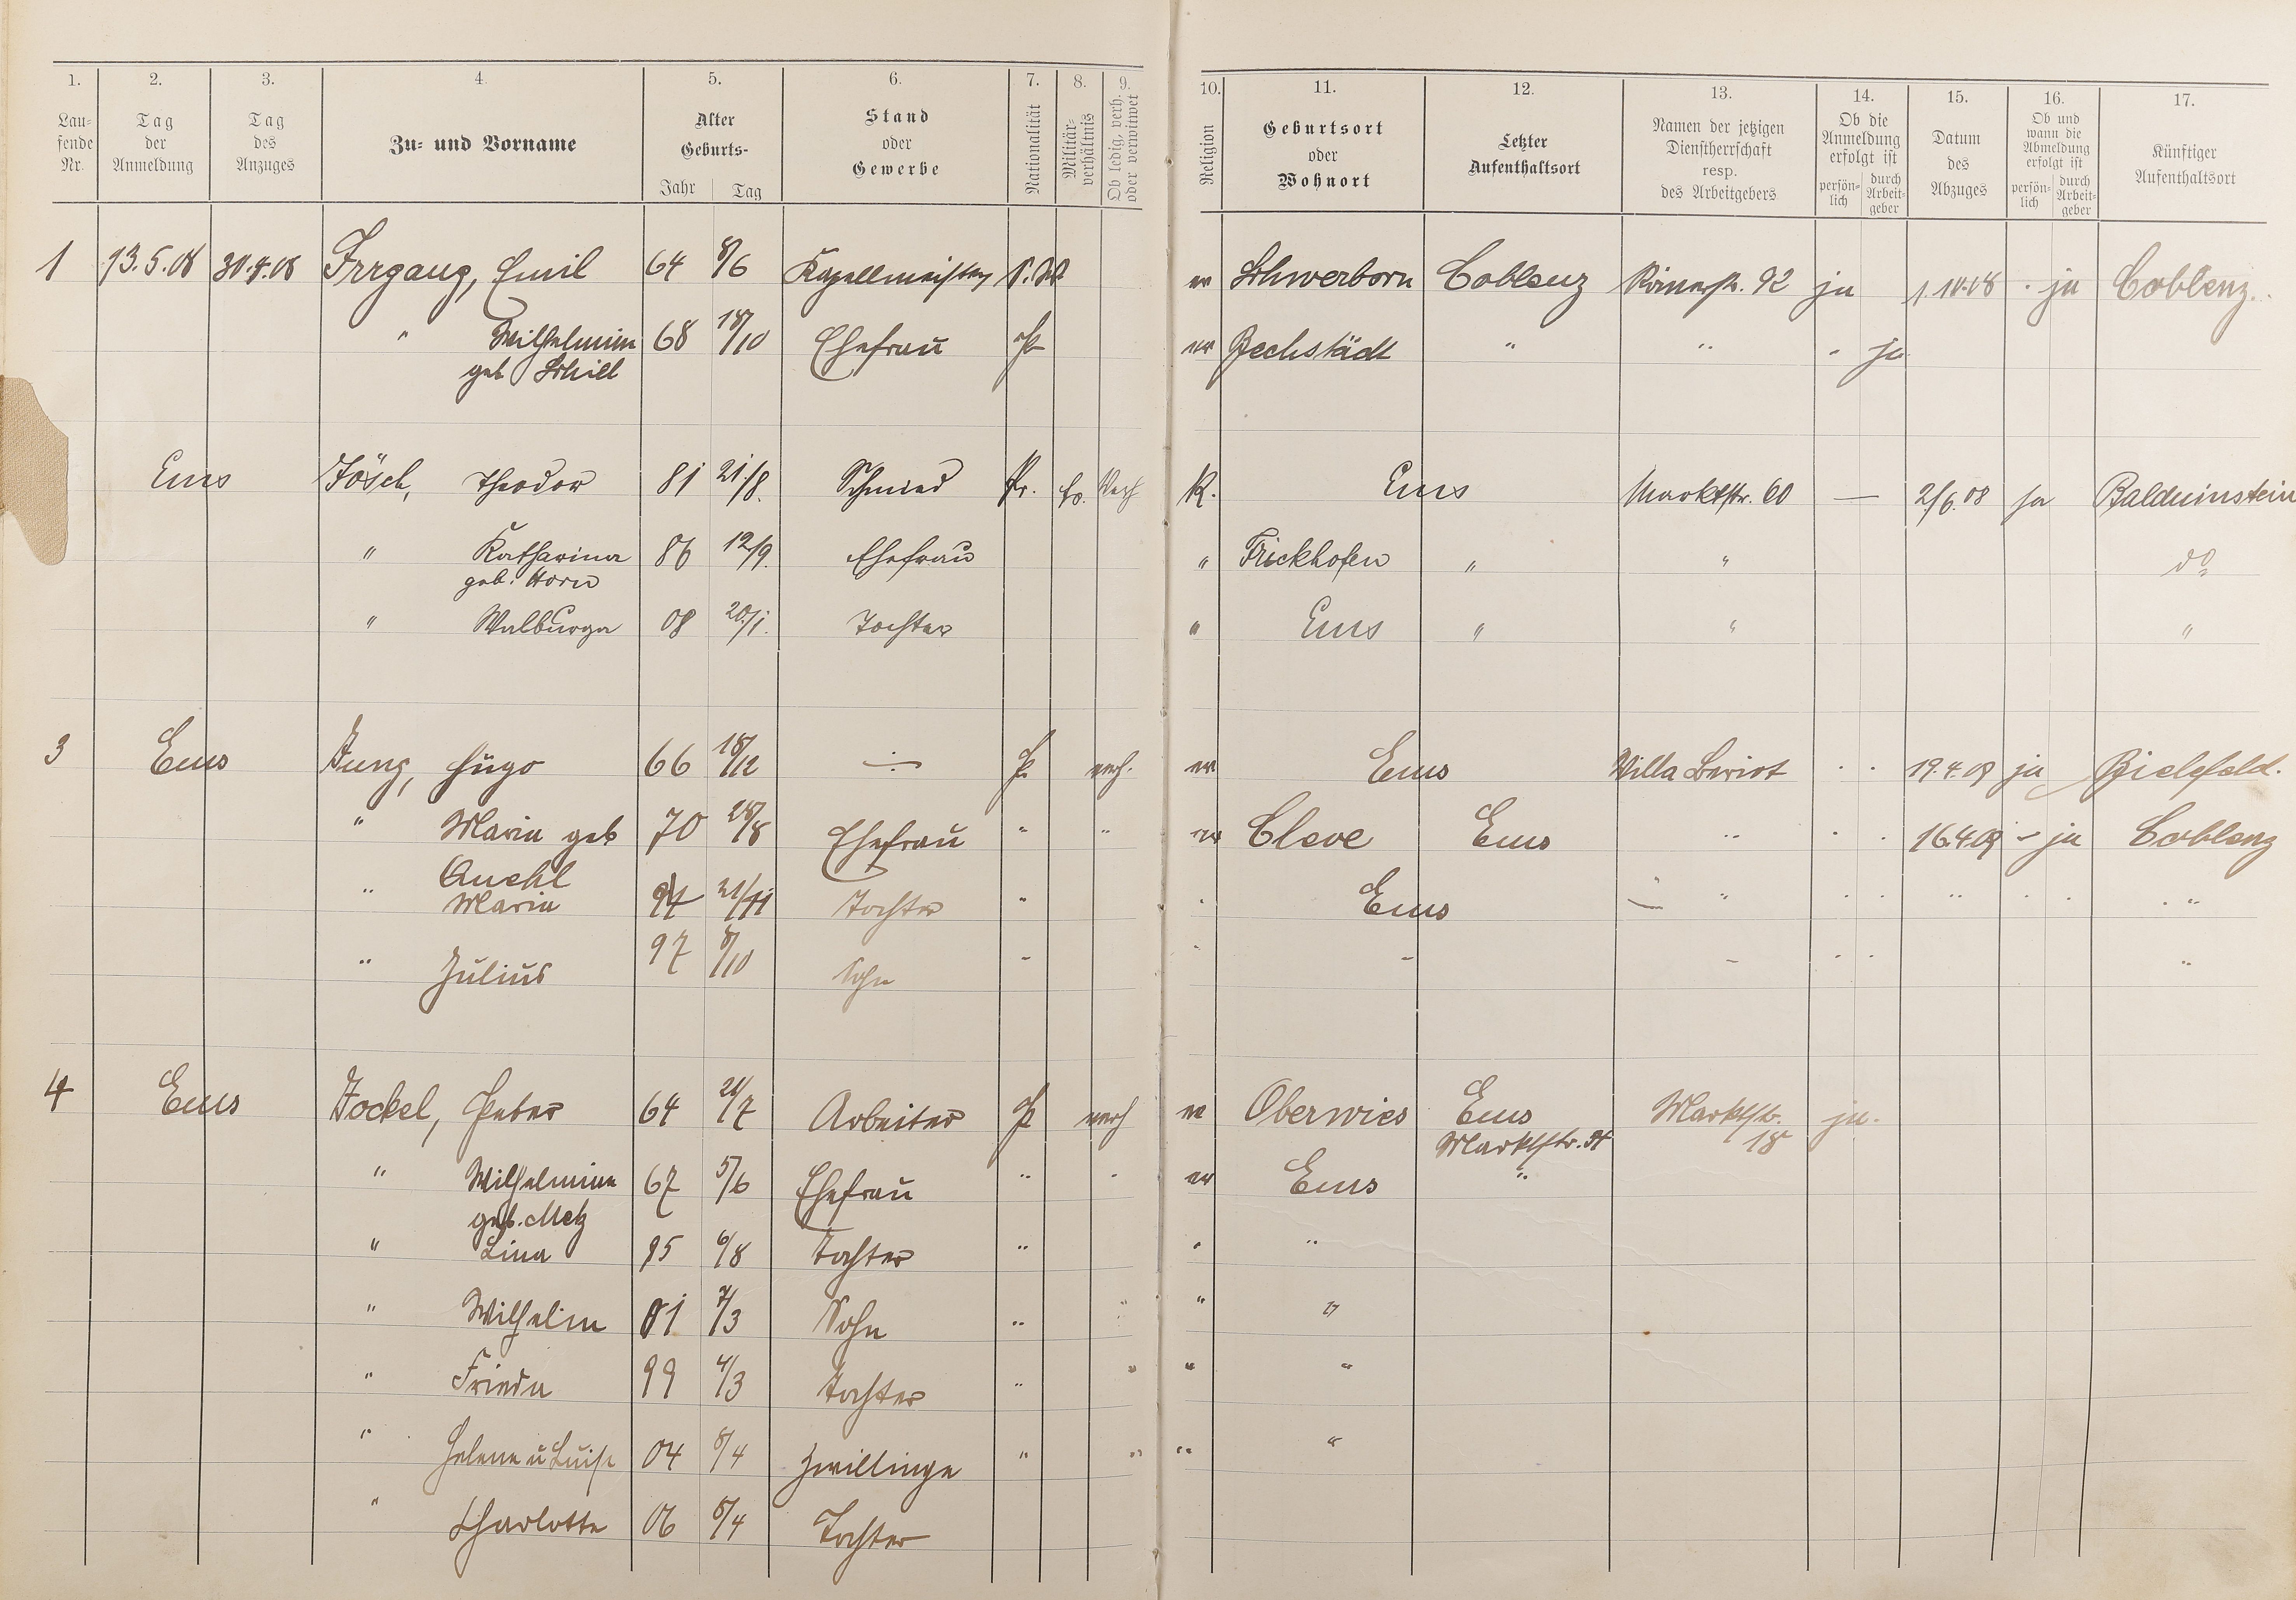 1. 2. 3. 4. 5. 6. 7. 8. 9. 10. 11. 12. 13. 14. 15. 16. 17.
Lau-
fende
Nr.
Tag
der
Anmeldung
Tag
des
Anzuges
Zu- und Vorname
Alter
Geburts-
Jahr Tag
Stand
oder
Gewerbe
Nationalität
Militär-
verhältnis
Ob ledig, verh.
oder verwitwet
Religion
Geburtsort
oder
Wohnort
Letzter
Aufenthaltsort
Namen der jetzigen
Dienstherrschaft
resp.
des Arbeitgebers
Ob die
Anmeldung
erfolgt ist
persön-
lich
durch
Arbeit-
geber
Datum
des
Abzuges
Ob und
wann die
Abmeldung
erfolgt ist
persön-
lich
durch
Arbeit-
geber
Künftiger
Aufenthaltsort
1 13.5.08 30.4.08 Irrgang, Emil 64 8/6 Kapellmeister Schwerborn Coblenz Römerstr. 92 ja 1.10.08 ja Coblenz
" Wilhelmin 68 18/10 Ehefrau P Bechstädt " " " ja
geb Schill
Ems Jösch, Theodor 81 21/8. Schmied Pr. Verh K. Ems Marktstr. 60 — 2/6.08 ja Balduinstein
" Katharina 86 12/9. Ehefrau " Frickhofen " " do
geb. Horn
" Walburga 08 20/1. Tochter " Ems " " "
3 Ems Jung, Hugo 66 18/12 — P verh. ev Ems Villa Beriot 19.4.09 ja Bielefeld.
" Maria geb 70 28/8 Ehefrau " " ev Cleve Ems " 16.4.09 - ja Coblenz
" Maria 94 21/11 Tochter " Ems " " "
" Julius 97 8/10 Sohn "
4 Ems Jockel, Peter 64 21/7 Arbeiter P verh ev Oberwies Ems Marktstr. ja.
Marktstr. 18
" Wilhelmine 67 5/6 Ehefrau " " ev Ems "
geb. Metz
" Lina 95 6/8 Tochter " " "
" Wilhelm 01 7/3 Sohn " " " "
" Frieda 99 4/3 Tochter " " " "
" Helene u Luise 04 8/4 Zwillinge " " " "
" Charlotte 06 5/4 Tochter